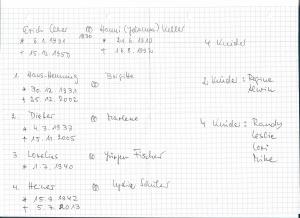 Erich ∞ Hanni (Johanna) Keller
* 6.1.1931 1930 * 21.6.1910 4 Kinder
+ 15.12.1950
1. Hans-Henning ∞ Brigitte 2 Kinder: Regine
* 30.12.1931
+ 25.12.2002
2. Dieter ∞ Marlene 4 Kinder: Randy
* 4.3.1937 Leslie
+ 15.11.2005 Lori
3. Lorelies ∞ Jürgen Fischer Mike
* 1.7.1940
4. Heiner ∞ Lydia
* 15.9.1942
+ 5.7.2013